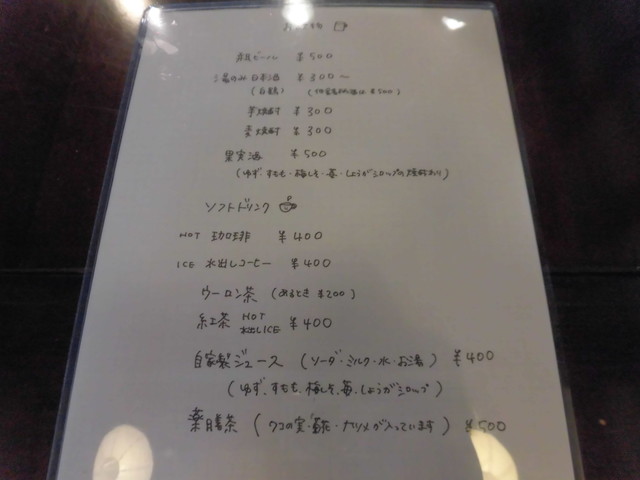 お
ビール ¥500
日本酒 ¥300〜
(白鶴) ( ¥500)
芋焼酎 ¥300
麦焼酎 ¥300
果実酒 ¥500
(ゆず・すもも・梅しそ・苺・しょうがシロップの焼酎わり)
ソフトドリンク
HOT 珈琲 ¥400
ICE 水出しコーヒー ¥400
ウーロン茶 (あるとき ¥200)
紅茶 HOT
水出しICE ¥400
自家製ジュース (ソーダ・ミルク・水・お湯) ¥400
(ゆず、すもも、梅しそ、苺、しょうがシロップ)
薬膳茶 (クコの実・ ・ナツメが入っています) ¥500